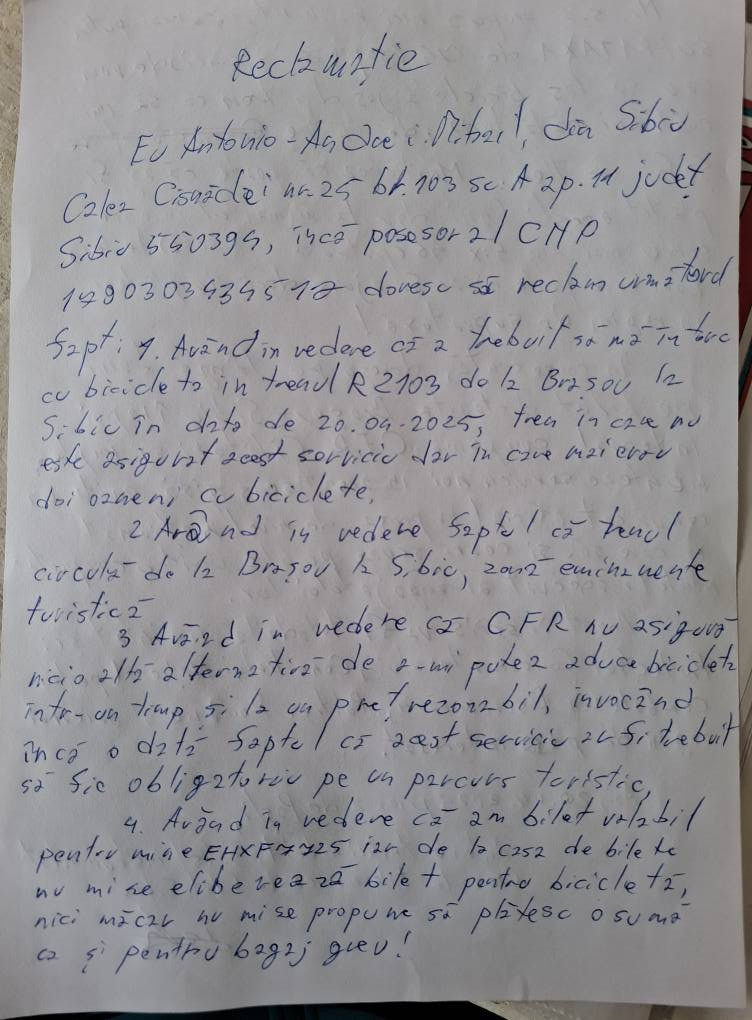 Reclamație
Eu Antonio-Andrei Mihail, din Sibiu
Calea Cisnădiei nr. 25 bl. 103 sc. A ap. 11 județ
Sibiu 550399, încă posesor al CNP
1790303434517 doresc să reclam următorul
fapt: 1. Având în vedere că a trebuit să mă întorc
cu bicicleta in trenul R2103 de la Brașov la
Sibiu în data de 20.04.2025, tren în care nu
este asigurat acest serviciu dar în care mai erau
doi oameni cu biciclete.
2 Având in vedere faptul că trenul
circulă de la Brașov la Sibiu, zonă eminamente
turistică
3 Având in vedere că CFR nu asigură
nicio altă alternativă de a-mi putea aduce bicicleta
într-un timp și la un preț rezonabil, invocând
încă o dată faptul că acest serviciu ar fi trebuit
să fie obligatoriu pe un parcurs turistic,
4. Având în vedere că am bilet valabil
pentru mine EHXF7725 iar de la casa de bilete
nu mi se eliberează bilet pentru bicicletă,
nici măcar nu mi se propune să plătesc o sumă
ca și pentru bagaj greu!